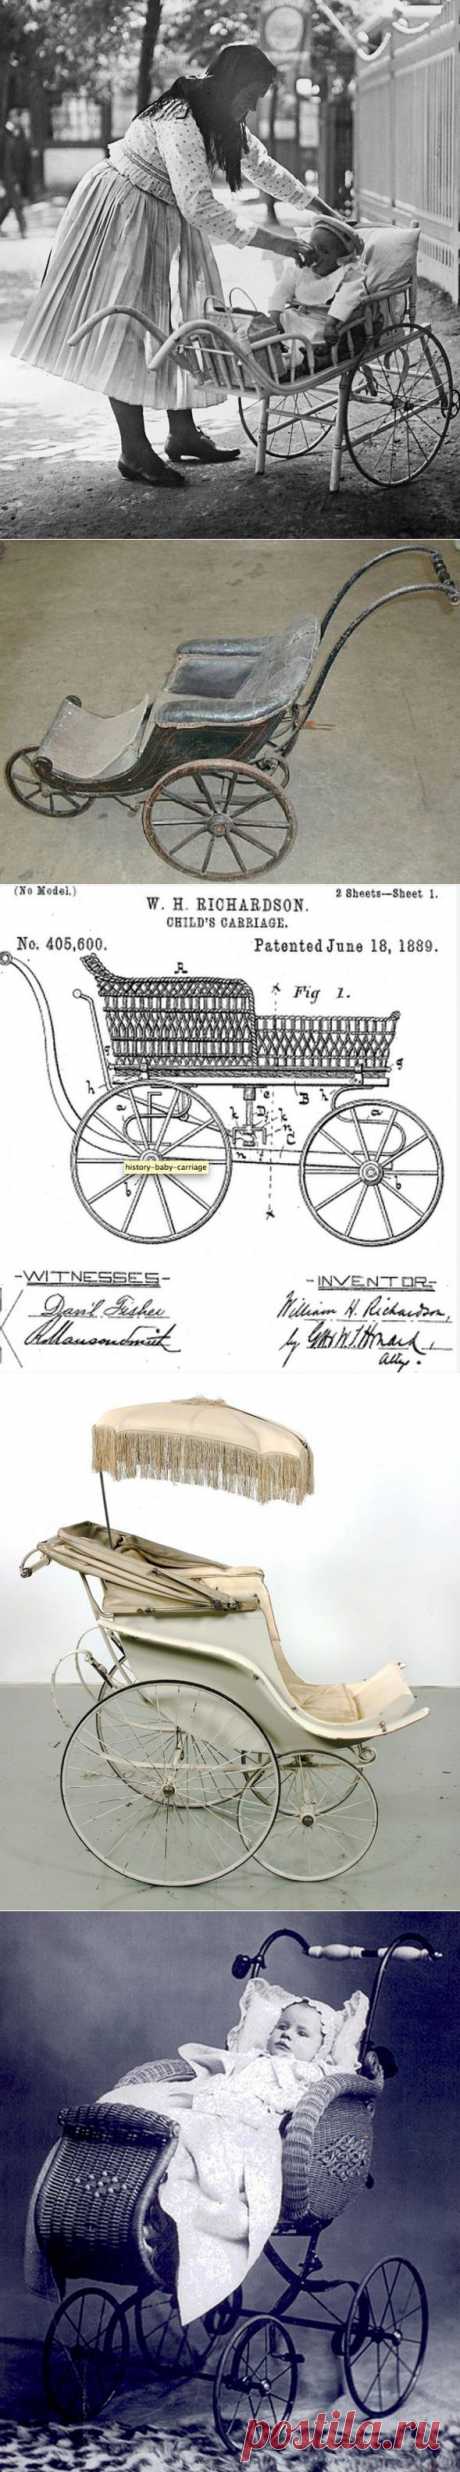 (No Model.)
2 Sheets—Sheet 1.
W. H. RICHARDSON.
CHILD'S CARRIAGE.
No. 405,600.
Patented June 18, 1889.
A
Fig 1.
x
g
g
h
B
h
a
k
D
e
k
a
n
C
history-baby-carriage
n
f
b
b
x
-WITNESSES-
-INVENTOR-
Danl Fisher
William H. Richardson,
by
Atty.
postila.ru